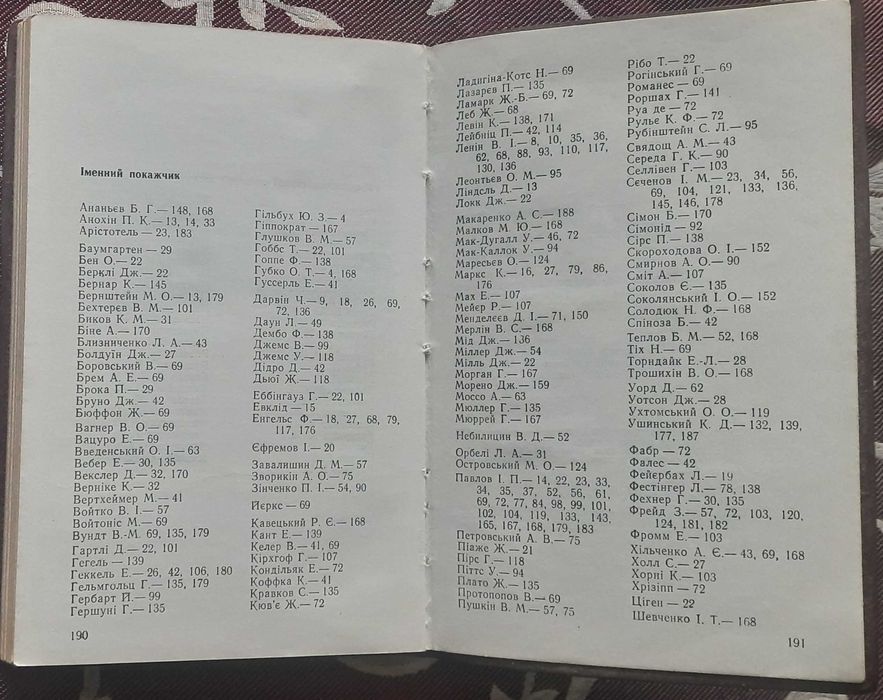 Іменний покажчик
Ананьєв Б. Г.— 148, 168
Анохін П. К.— 13, 14, 33
Арістотель — 23, 183
Баумгартен — 29
Бен О.— 22
Берклі Дж.— 22
Бернар К.— 145
Бернштейн М. О.— 13, 179
Бехтерєв В. М.— 101
Биков К. М.— 31
Біне А.— 170
Близниченко Л. А.— 43
Болдуїн Дж.— 27
Боровський В.— 69
Брем А. Е.— 69
Брока П.— 29
Бруно Дж.— 42
Бюффон Ж.— 69
Вагнер В. О.— 69
Вацуро Е.— 69
Введенський О. І.— 63
Вебер Е.— 30, 135
Векслер Д.— 32, 170
Верніке К.— 32
Вертхеймер М.— 41
Войтко В. І.— 57
Войтоніс М.— 69
Вундт В.-М.— 69, 135, 179
Гартлі Д.— 22, 101
Гегель — 139
Геккель Е.— 26, 42, 106, 180
Гельмгольц Г.— 135, 179
Гербарт Й.— 99
Гершуні Г.— 135
190
Гільбух Ю. З.— 4
Гіппократ — 167
Глушков В. М.— 57
Гоббс Т.— 22, 101
Гоппе Ф.— 138
Губко О. Т.— 4, 168
Гуссерль Е.— 41
Дарвін Ч.— 9, 18, 26, 69,
72, 136
Даун Л.— 49
Дембо Ф.— 138
Джемс В.— 99
Джемс У.— 118
Дідро Д.— 42
Дьюї Ж.— 118
Еббінгауз Г.— 22, 101
Евклід — 15
Енгельс Ф.— 18, 27, 68, 79,
117, 176
Єфремов І.— 20
Завалишин Д. М.— 57
Зворикін А. О.— 75
Зінченко П. І.— 54, 90
Йєркс — 69
Кавецький Р. Є.— 168
Кант Е.— 139
Келер В.— 41, 69
Кірхгоф Г.— 107
Кондільяк Е.— 72
Коффка К.— 41
Кравков С.— 135
Кюв'є Ж.— 72
Ладигіна-Котс Н.— 69
Лазарєв П.— 135
Ламарк Ж.-Б.— 69, 72
Леб Ж.— 68
Левін К.— 138, 171
Лейбніц П.— 42, 114
Ленін В. І.— 8, 10, 35, 36,
62, 68, 88, 93, 110, 117,
130, 136
Леонтьєв О. М.— 95
Ліндсль Д.— 13
Локк Дж.— 22
Макаренко А. С.— 188
Малков М. Ю.— 168
Мак-Дугалл У.— 46, 72
Мак-Каллок У.— 94
Маресьєв О.— 124
Маркс К.— 16, 27, 79, 86,
176
Мах Е.— 107
Мейєр Р.— 107
Менделеєв Д. І.— 71, 150
Мерлін В. С.— 168
Мід Дж.— 136
Міллер Дж.— 54
Мілль Дж.— 22
Морган Г.— 167
Морено Дж.— 159
Моссо А.— 63
Мюллер Г.— 135
Мюррей Г.— 167
Небилицин В. Д.— 52
Орбелі Л. А.— 31
Островський М. О.— 124
Павлов І. П.— 14, 22, 23, 33,
34, 35, 37, 52, 56, 61,
69, 72, 77, 84, 98, 99, 101,
102, 104, 119, 133, 143,
165, 167, 168, 179, 183
Петровський А. В.— 75
Піаже Ж.— 21
Пірс Г.— 118
Піттс У.— 94
Плато Ж.— 135
Протопопов В.— 69
Пушкін В. М.— 57, 75
Рібо Т.— 22
Рогінський Г.— 69
Романес — 69
Роршах Г.— 141
Руа де — 72
Рульє К. Ф.— 72
Рубінштейн С. Л.— 95
Свядощ А. М.— 43
Середа Г. К.— 90
Селлівен Г.— 103
Сєченов І. М.— 23, 34, 56,
69, 104, 121, 133, 136,
145, 146, 178
Сімон Б.— 170
Симонід — 92
Сірс П.— 138
Скороходова О. І.— 152
Смирнов А. О.— 90
Сміт А.— 107
Соколов Є.— 135
Соколянський І. О.— 152
Солодюк Н. Ф.— 168
Спіноза Б.— 42
Теплов Б. М.— 52, 168
Тіх Н.— 69
Торндайк Е.-Л.— 28
Трошихін В. О.— 168
Уорд Д.— 62
Уотсон Дж.— 28
Ухтомський О. О.— 119
Ушинський К. Д.— 132, 139,
177, 187
Фабр — 72
Фалес — 42
Фейєрбах Л.— 19
Фестінгер Л.— 78, 138
Фехнер Г.— 30, 135
Фрейд З.— 57, 72, 103, 120,
124, 181, 182
Фромм Е.— 103
Хільченко А. Є.— 43, 69, 168
Холл С.— 27
Хорні К.— 103
Хрізіпп — 72
Ціген — 22
Шевченко І. Т.— 168
191